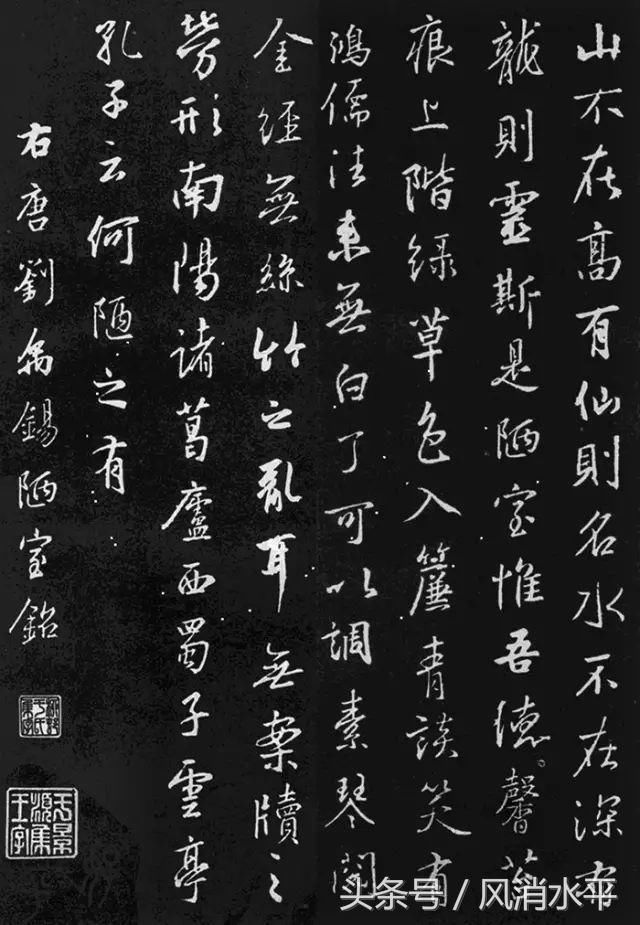 山不在高有仙則名水不在深有
龍則靈斯是陋室惟吾德馨苔
痕上階綠草色入簾青談笑有
鴻儒往來無白丁可以調素琴閱
金經無絲竹之亂耳無案牘之
勞形南陽諸葛廬西蜀子雲亭
孔子云何陋之有
右唐劉禹錫陋室銘
头条号 / 风消水平